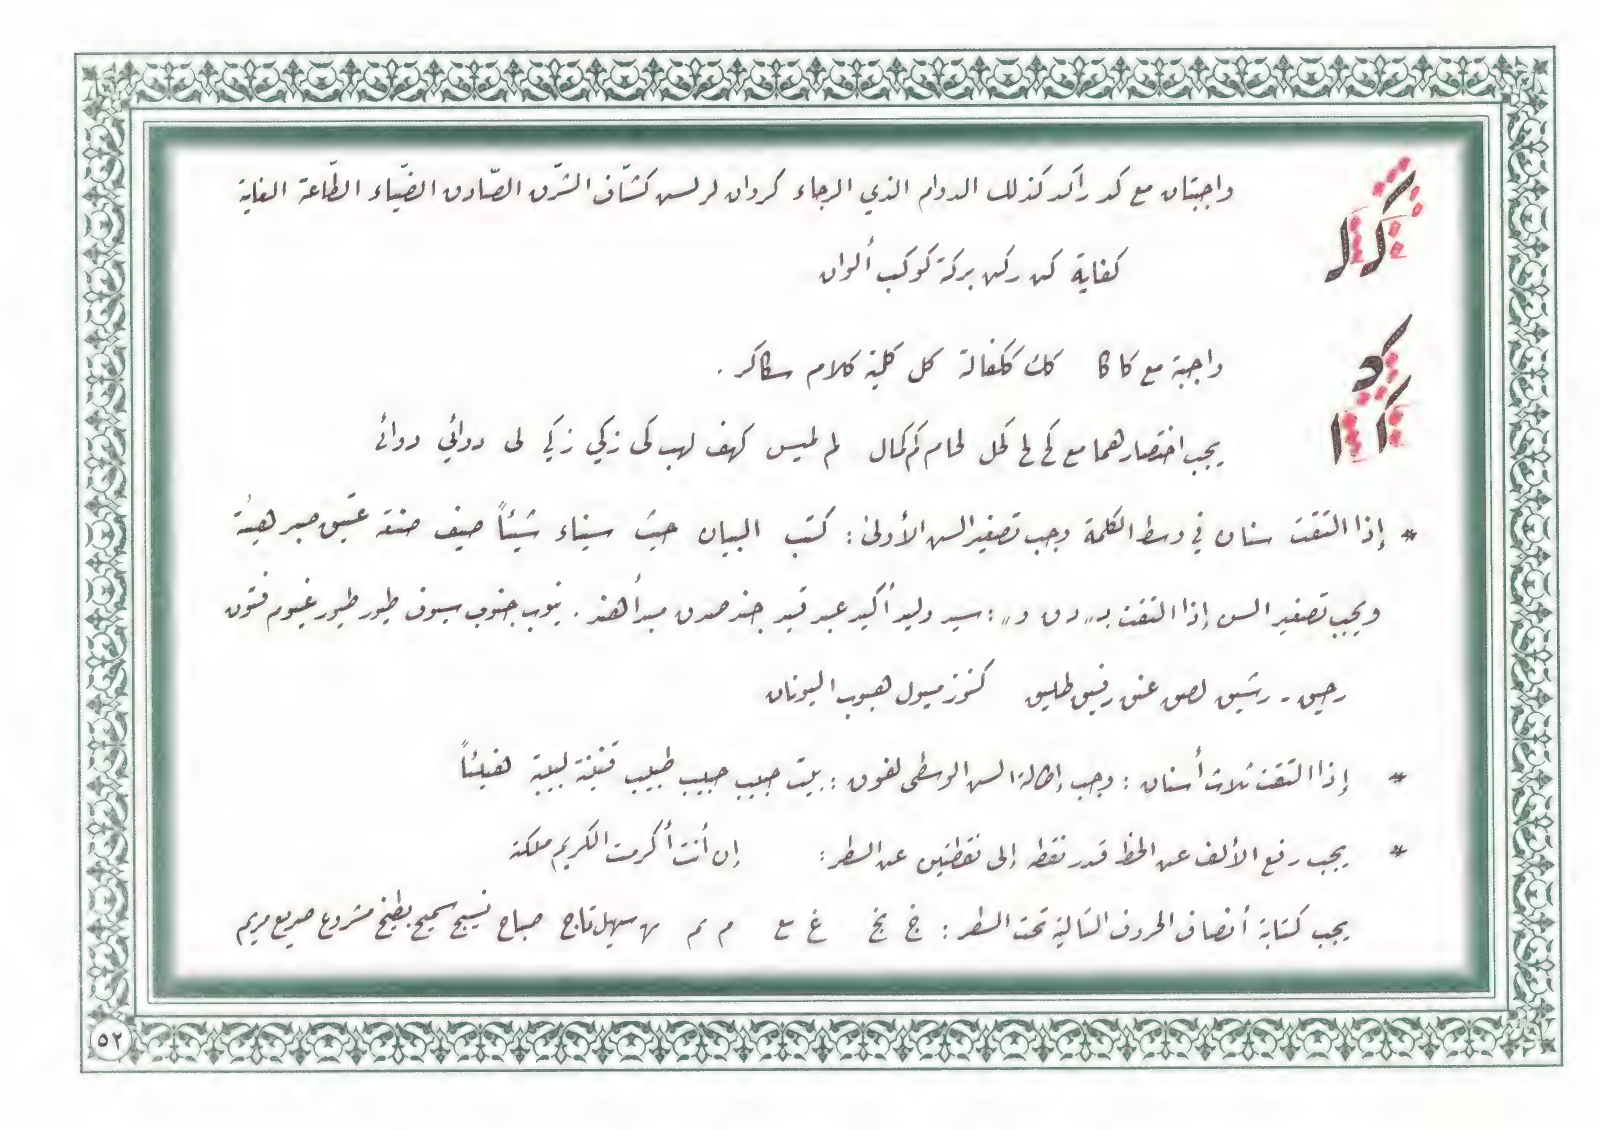 واجبتان مع كد راكد كذلك الدوام الذي الرجاء كروان لرلس كشّاف الشّرق الصّادق الضّياء الطّاعة الغاية
كفاية كن ركن بركة كوكب ألوان
واجبة مع كا كا كلف ككفالة كل كلية كلام سكاكر .
يجب اختصارهما مع كم لم كحل لحام كم كمال لم لميس كهف لهب كى زكي زكي لى دوائي دوائي
* إذا التقت سنان في وسط الكلمة وجب تصغير السن الأولى : كتب البيان حيث سيناء شيئاً صيف صنفه عتيق صبر هبة
ويجب تصغير السن إذا التقت بـ " د ن و " : سيد وليد أكيد عبد قيد جند صدق مبدأ هند . ينوب جنوب سيوف طيور طيور غيوم فنون
رحيق - رشيق لصق عنق رفيق طليق كنوز ميول هبوب اليونان
* إذا التقت ثلاث أسنان : وجب إطالة السن الوسطى لفوق : بيت حبيب حبيب طبيب قنينة لبيبة هنيئاً
* يجب رفع الألف عن الخط قدر نقطة إلى نقطتين عن السطر : إن أنت أكرمت الكريم ملكته
يجب كتابة أنصاف الحروف التالية تحت السطر : خ نخ غ مع م تم نه سهل تاج صباح نسيج سميح بطيخ مشروع صريع مريم
٥٢